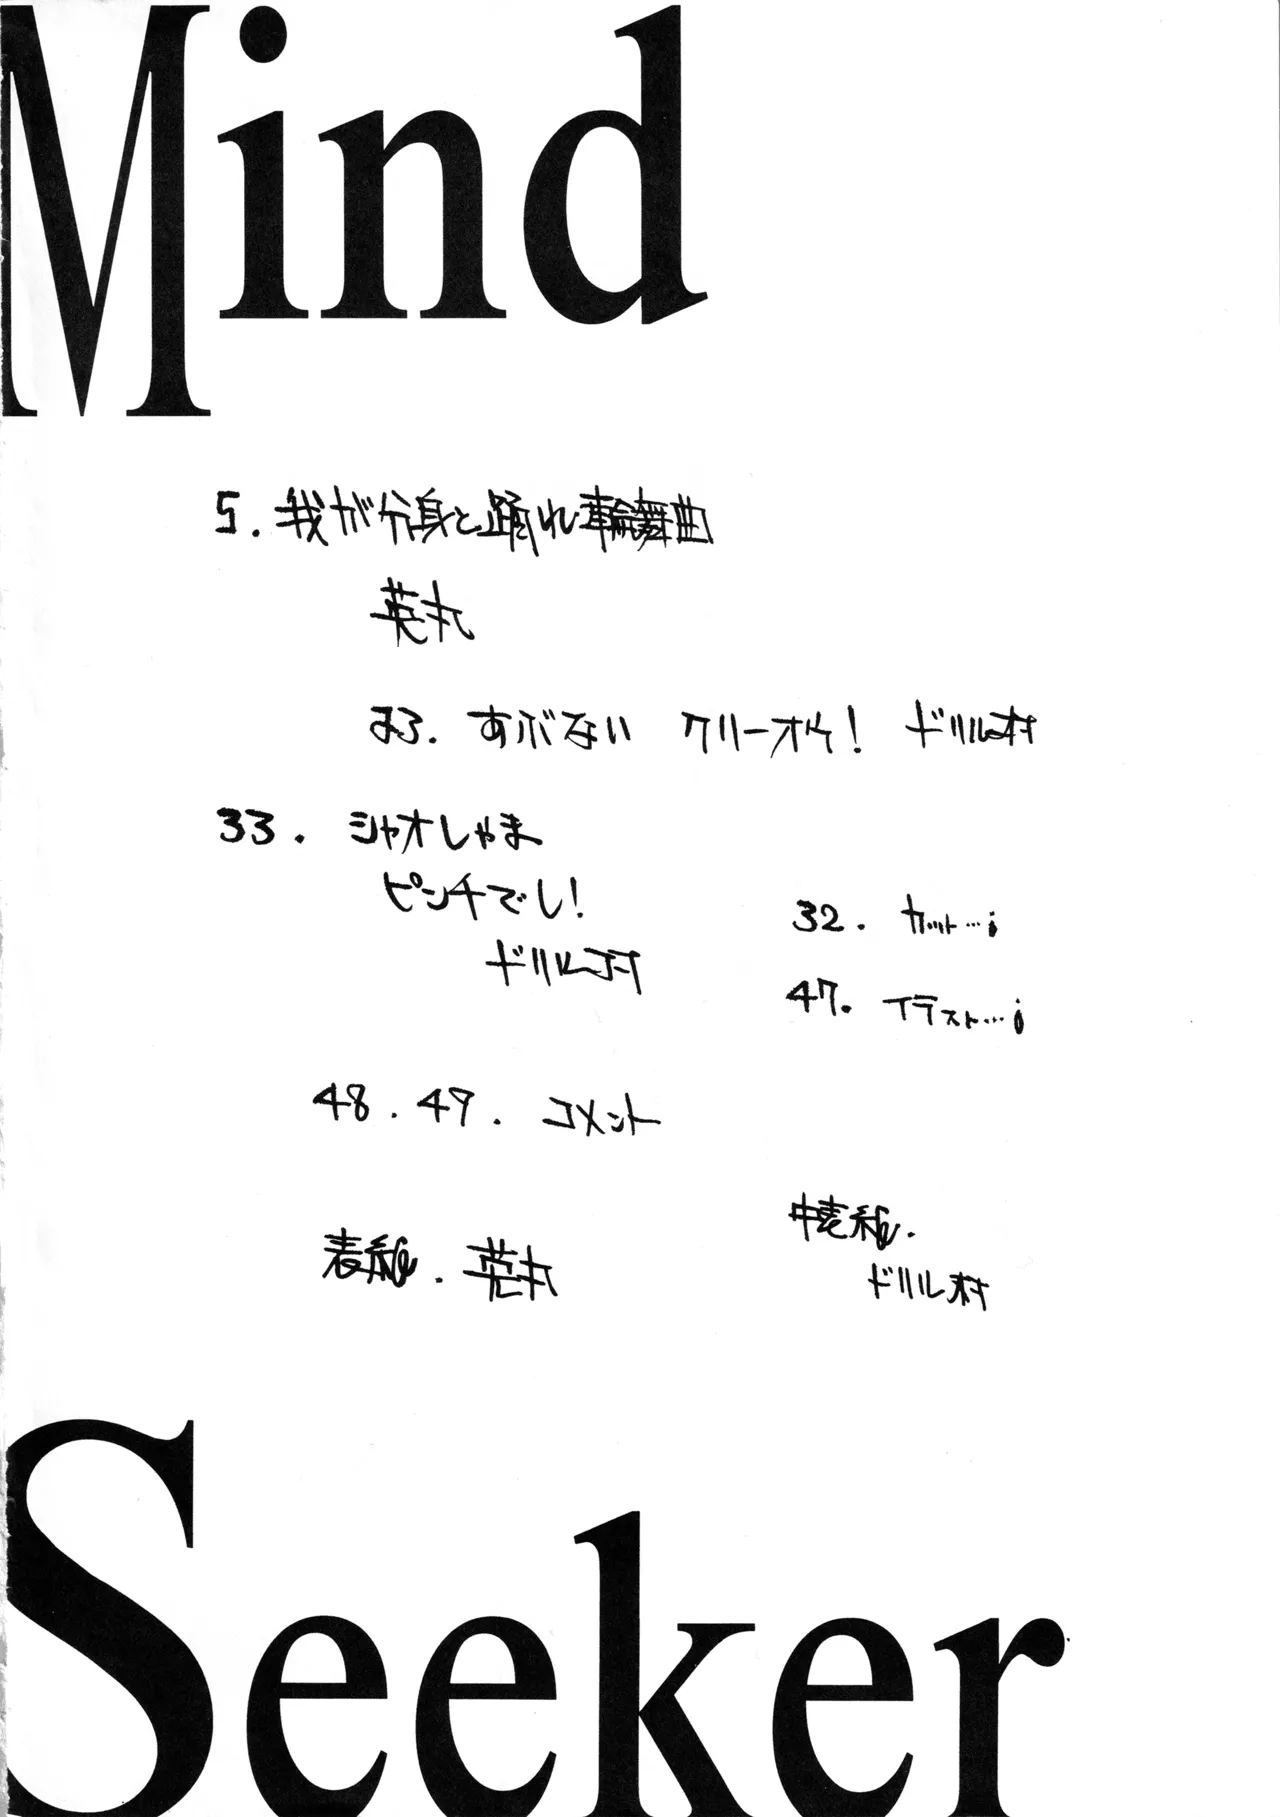 Mind
5. 我が分身と踊れ輪舞曲
英丸
23. あぶない クリーオウ! ドリル村
33. シャオしゃま
ピンチでし!
ドリル村
32. カット…i
47. イラスト…i
48. 49. コメント
中表紙.
ドリル村
表紙. 英丸
Seeker